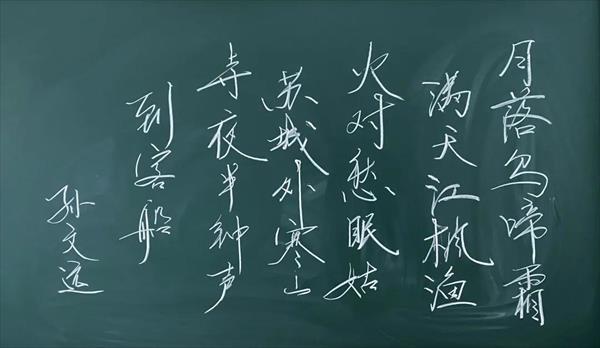 月落乌啼霜
满天江枫渔
火对愁眠姑
苏城外寒山
寺夜半钟声
到客船
孙文远